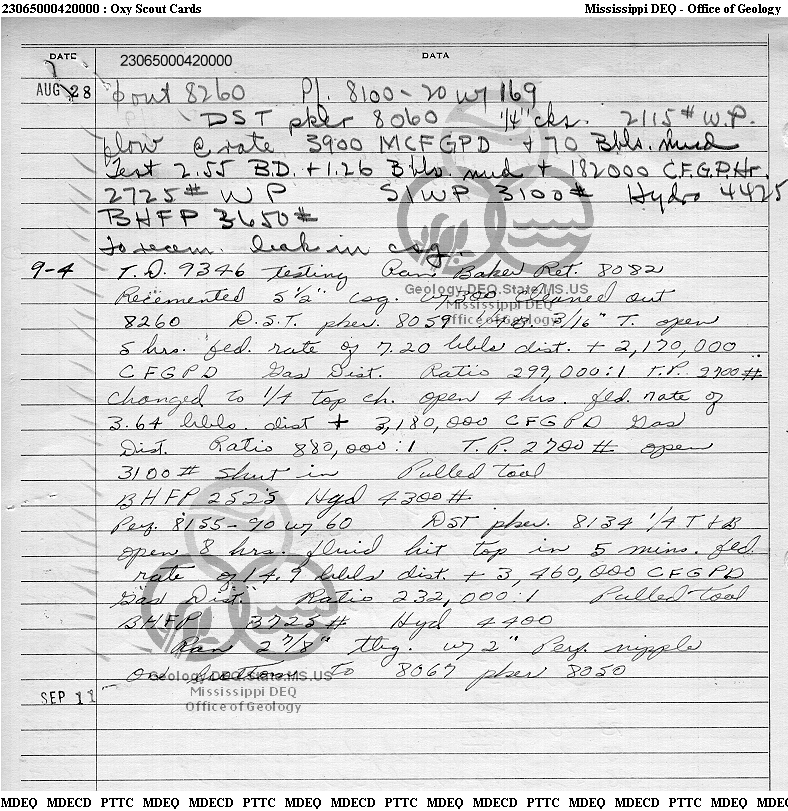 23065000420000 : Oxy Scout Cards Mississippi DEQ - Office of Geology
DATE 23065000420000 DATA
AUG 28 out 8260 Pf. 8100-20 w/ 169
DST pker 8060 1/4" cks. 2115# W.P.
flow @ rate 3900 MCFGPD + 70 Bbls. mud
Test 2.55 B.D. + 1.26 Bbls mud + 182000 C.F.G.P.Hr.
2725# W P SIWP 3100# Hydro 4425
BHFP 3650#
to recem. leak in csg.
9-4 T.D. 9346 Testing Ran Baker Ret. 8082
Geology.DEQ.State.MS.US
Recemented 5 1/2" csg. w/ 300 Cleaned out
Mississippi DEQ
8260 D.S.T. pker. 8059 3/16" T. open
Office of Geology
5 hrs. fld. rate of 7.20 bbls dist. + 2,170,000
CFGPD Gas Dist. Ratio 299,000:1 T.P. 2700#
Changed to 1/4 top ch. open 4 hrs. fld. rate of
3.64 bbls. dist + 3,180,000 CFGPD Gas
Dist. Ratio 880,000:1 T.P. 2700# open
3100# shut in Pulled tool
BHFP 2525 Hyd 4300#
Perf. 8155-90 w/ 60 DST pker. 8134 1/4 T & B
open 8 hrs. fluid hit top in 5 mins. fld.
rate of 14.9 bbls dist. + 3,460,000 CFGPD
Gas Dist. Ratio 232,000:1 Pulled tool
BHFP 3725# Hyd 4400
Ran 2 7/8" tbg. w/ 2" Perf. nipple
on bottom to 8067 pker 8050
Geology.DEQ.State.MS.US
SEP 11 Mississippi DEQ
Office of Geology
MDEQ MDECD PTTC MDEQ MDECD PTTC MDEQ MDECD PTTC MDEQ MDECD PTTC MDEQ MDECD PTTC MDEQ MDE